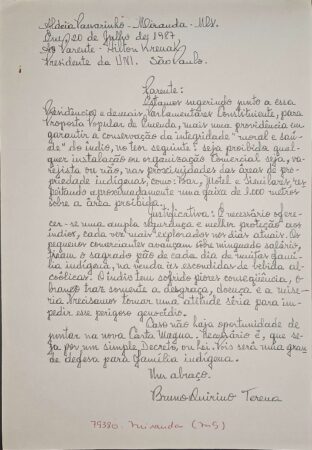 Aldeia Passarinho - Miranda - MS.
Em, 20 de Julho de 1987.
Ao Parente - Ailton Krenak
Presidente da UNI. São Paulo.
Parente:
Estamos sugerindo junto a essa
Presidência e demais Parlamentares Constituinte, para
Proposta Popular de Emenda, mais uma providência em
garantir a conservação da integridade "moral e saú-
de" do índio, no teor seguinte: seja proibida qual-
quer instalação ou organização Comercial seja, va-
rejista ou não, nas proximidades das áreas de pro-
priedade indígenas, como: bar, Hotel e Similares, res-
peitando aproximadamente uma faixa de 1.000 metros
sobre a área proibida.
Justificativa: É necessário ofere-
cer-se uma ampla segurança e melhor proteção aos
índios, cada vez mais explorados nos dias atuais. Os
pequenos comerciantes avançam sobre minguado salário,
tiram o sagrado pão de cada dia de muitas famí-
lia indígena, na venda às escondidas de bebida al-
coólicas. O índio tem sofrido piores conseqüência, o
branco traz somente a desgraça, doença e a misé-
ria. Precisamos tomar uma atitude séria para im-
pedir esse perigoso genocídio.
Caso não haja oportunidade de
pontar na nova Carta Magna, necessário é, que se-
ja por um simples Decreto, ou Lei. Pois será uma gran
de defesa para família indígena.
Um abraço.
Bruno Quirino Terena
79380. Miranda (MS)